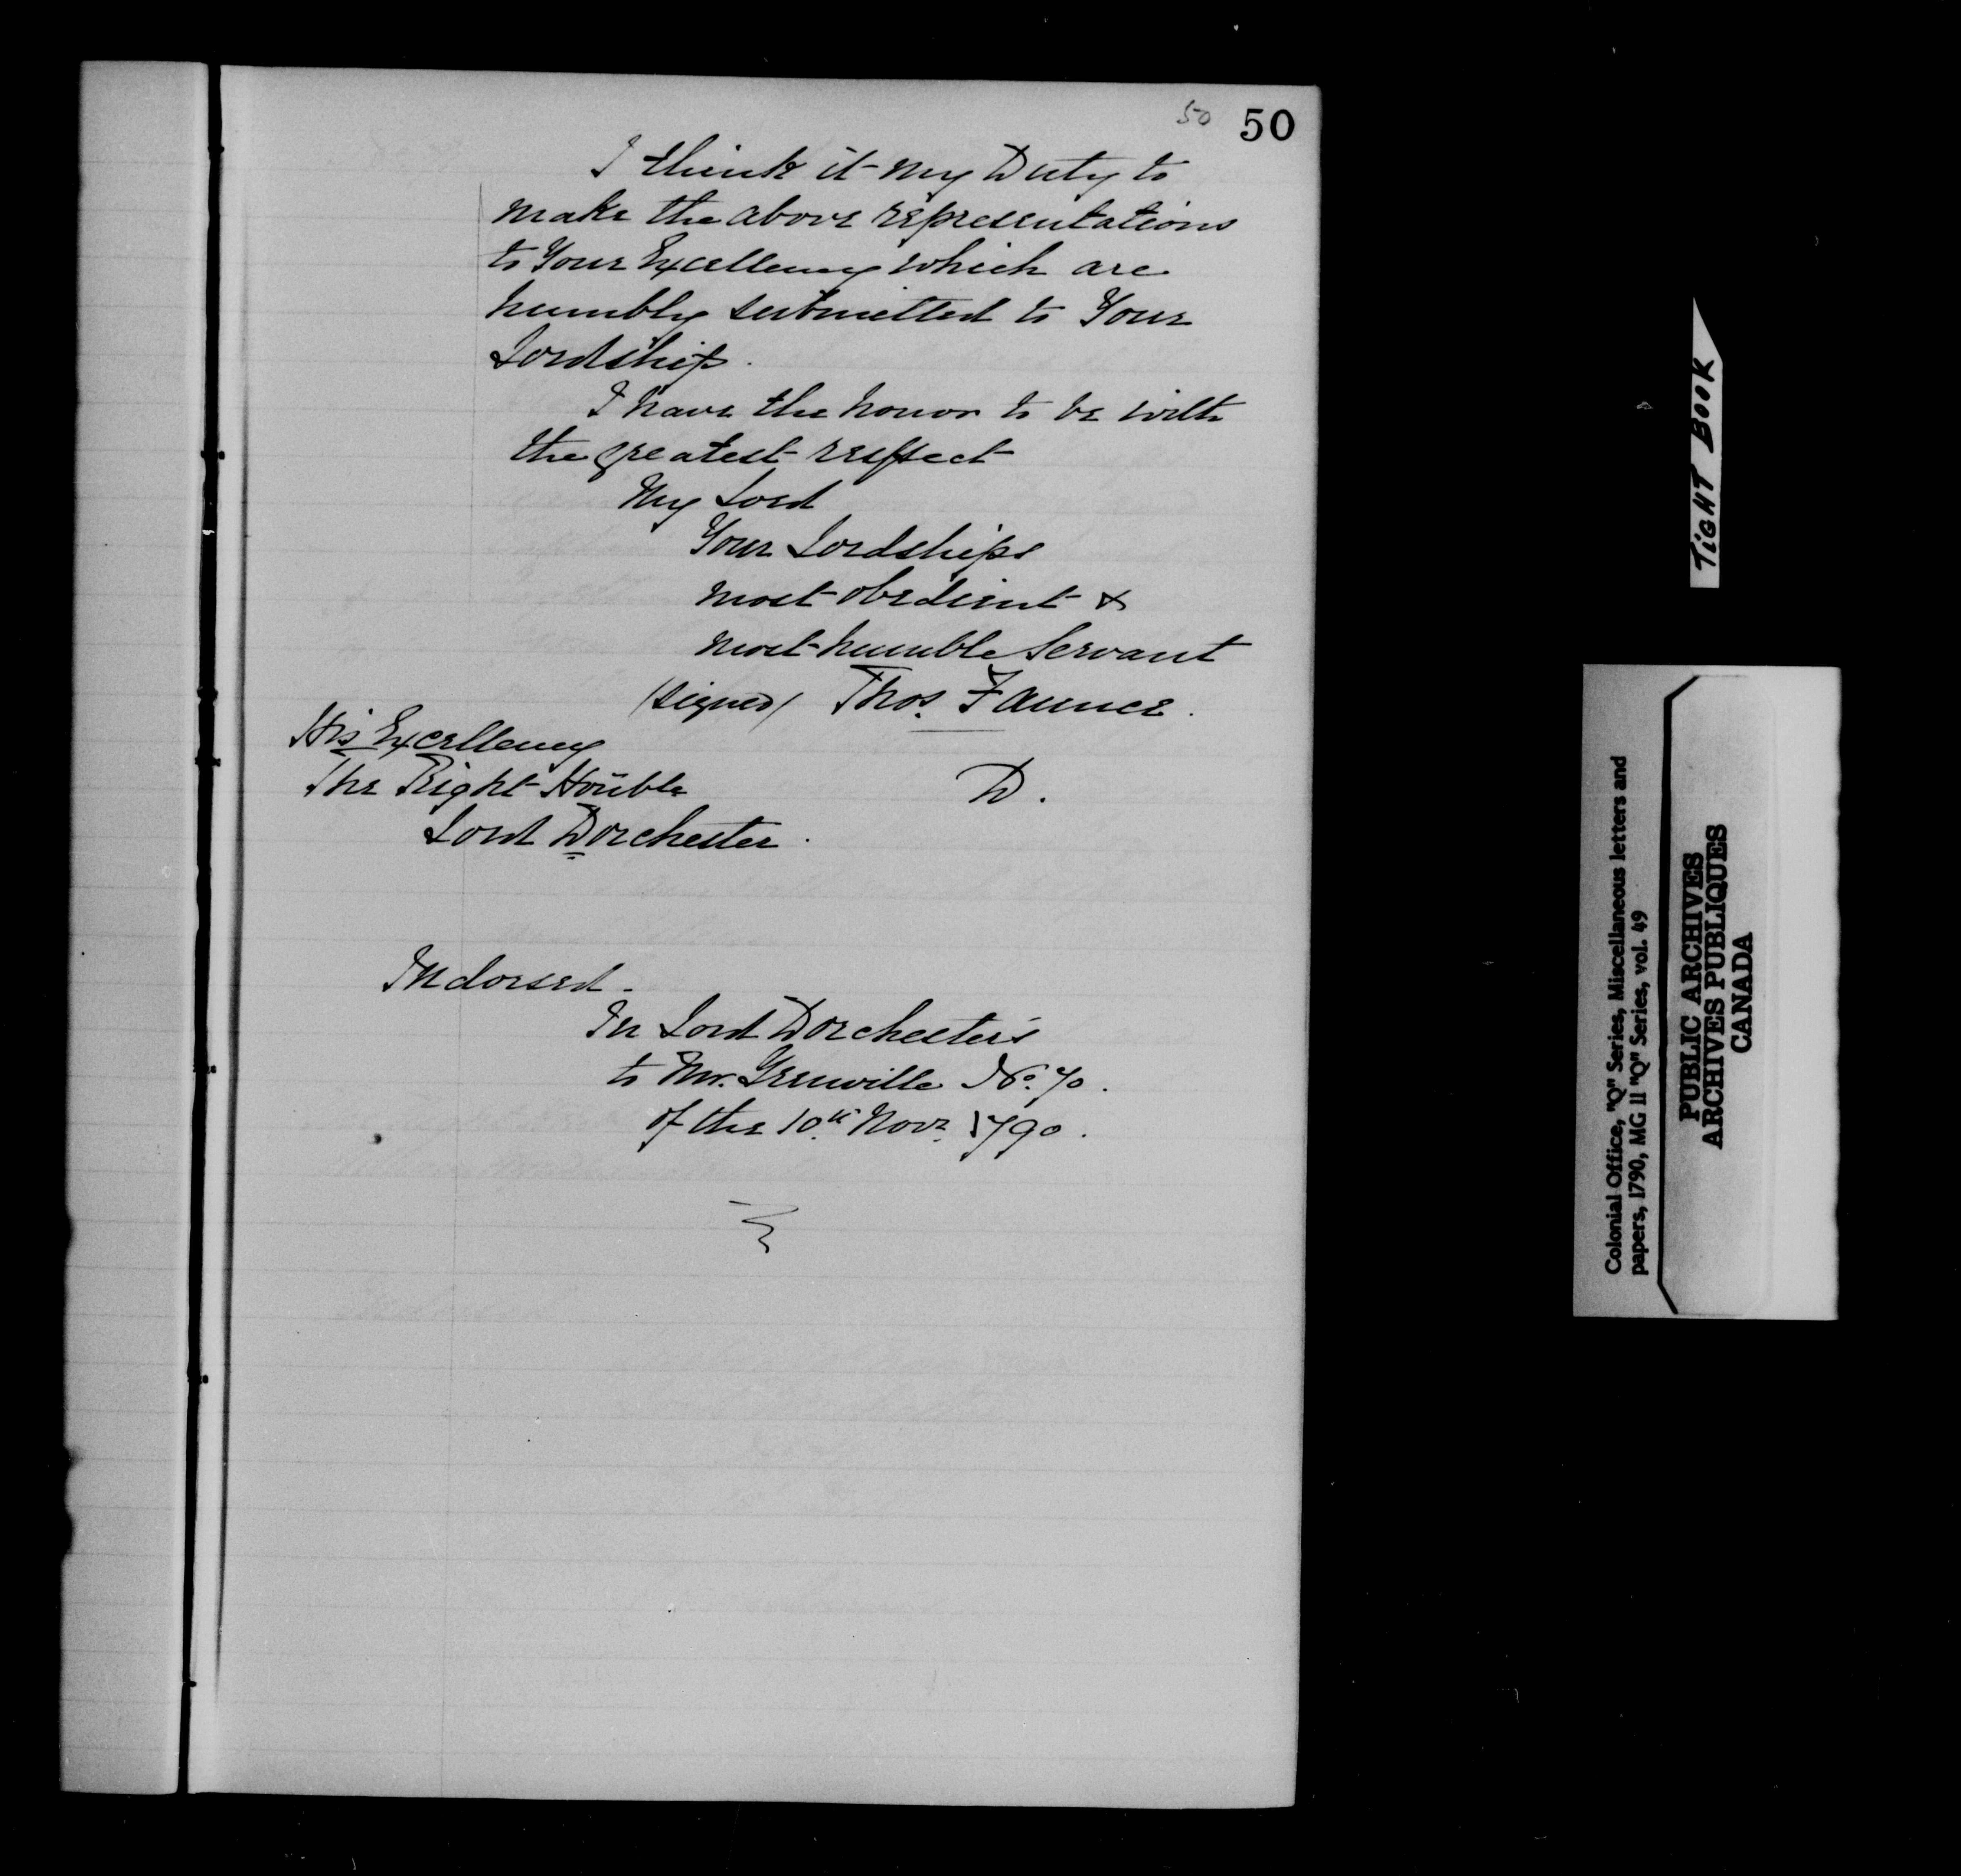 50 50
I think it my Duty to
make the above representations
to Your Excellency which are
humbly submitted to Your
Lordship.
I have the honor to be with
the greatest respect
My Lord
Your Lordships
most obedient &
most humble Servant
(signed) Thos. Faunce.
His Excellency
The Right Honble
Lord Dorchester.
D.
Indorsed.
In Lord Dorchester's
to Mr. Grenville No. 70.
of the 10th Novr. 1790.
TIGHT BOOK
Colonial Office, "Q" Series, Miscellaneous letters and
papers, 1790, MG 11 "Q" Series, vol. 49
PUBLIC ARCHIVES
ARCHIVES PUBLIQUES
CANADA